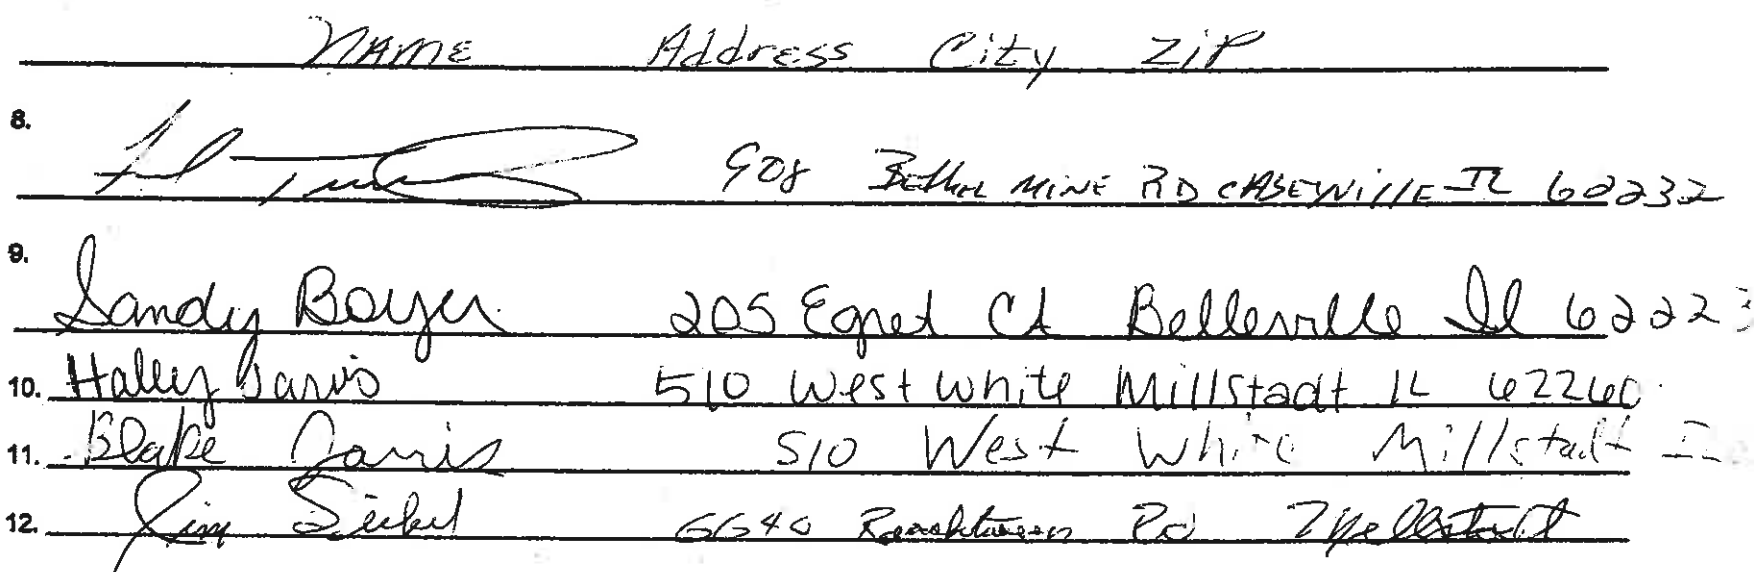 NAME Address City ZiP
8. 908 Bethel MiNE RD CASEYVillE IL 62232
9. Sandy Boyer 205 Egret Ct Belleville Il 62223
10. Haley Jarvis 510 West White Millstadt IL 62260
11. Blake Jarvis 510 West White Millstadt IL
12. Jim Seibel 6640 Rd Millstadt